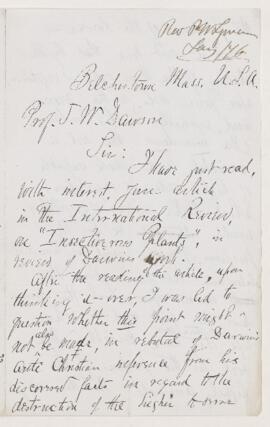 Rev P W Lyman
Jany 1/76
Belchertown Mass. U.S.A.
Prof. J. W. Dawson
Sir:
I have just read,
with interest, your article
in the International Review,
on "Insectivorous Plants", in
review of Darwin's work.
After the reading the article, upon
thinking it over, I was led to
question whether this point might
also
not be made, in rebuttal of Darwin's
anti Christian inference from his
discovered facts in regard to the
destruction of the higher to serve